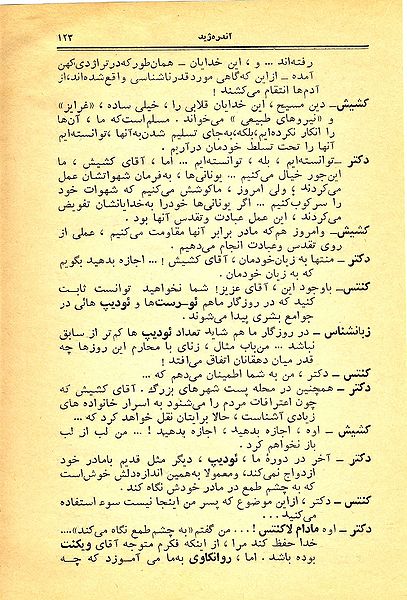 آندره ژید ۱۲۳
رفته‌اند ... و ، این خدایان ــ همان‌طور که در تراژدی کهن
آمده ــ از این که گاهی مورد قدرناشناسی واقع شده‌اند، از
آدم‌ها انتقام می‌کشند !
کشیش ــ دین مسیح ، این خدایان قلابی را ، خیلی ساده ، «غرایز»
و «نیروهای طبیعی » می‌خواند . مسلم است که ما ، آن‌ها
را انکار نکرده‌ایم،بلکه،به‌جای تسلیم شدن به‌آنها ،توانسته‌ایم
آنها را تحت تسلط خودمان درآریم .
دکتر ــ توانسته‌ایم ، بله ، توانسته‌ایم ... اما ، آقای کشیش ، ما
این‌جور خیال می‌کنیم ... یونانی‌ها ، به‌فرمان شهواتشان عمل
می‌کردند ؛ ولی امروز ، ما کوشش می‌کنیم که شهوات خود
را سرکوب کنیم ... اگر یونانی‌ها خود را به خدایانشان تفویض
می‌کردند ، این عمل عبادت وتقدس آنها بود .
کشیش ــ وامروز هم که مادر برابر آنها مقاومت می‌کنیم ، عملی از
روی تقدس وعبادت انجام می‌دهیم .
دکتر ــ منتها به زبان خودمان ، آقای کشیش ! ... اجازه بدهید بگویم
که به زبان خودمان .
کنتس ــ باوجود این ، آقای عزیز! شما نخواهید توانست ثابت
کنید که در روزگار ماهم ئورست‌ها و ئودیپ هائی در
جوامع بشری پیدا می‌شوند .
زبانشناس ــ در روزگار ما هم شاید تعداد ئودیپ ها کم‌تر از سابق
نباشد ... من‌باب مثال ، زنای با محارم این روزها چه
قدر میان دهقانان اتفاق می‌افتد !
کنتس ــ دکتر ، من به شما اطمینان می‌دهم که ...
دکتر ــ همچنین در محله پست شهرهای بزرگ . آقای کشیش که
چون اعترافات مردم را می‌شنود به اسرار خانواده های
زیادی آشناست ، حالا برایتان نقل خواهد کرد که ...
کشیش ــ اوه ، اجازه بدهید ، اجازه بدهید ! ... من لب از لب
باز نخواهم کرد .
دکتر ــ آخر در دورهٔ ما ، ئودیپ ، دیگر مثل قدیم بامادر خود
ازدواج نمی‌کند، ومعمولا به‌همین اندازه‌دلش خوش‌است
که به چشم طمع در مادر خودش نگاه کند .
کنتس ــ دکتر ، ازاین موضوع که پسر من اینجا نیست سوء استفاده
می‌کنید...
دکتر ــ اوه مادام لاکنتس !... من گفتم«به چشم طمع نگاه می‌کند»....
خدا حفظ کند مرا ، از اینکه فکرم متوجه آقای ویکنت
بوده باشد . اما ، روانکاوی به‌ما می آموزد که چه